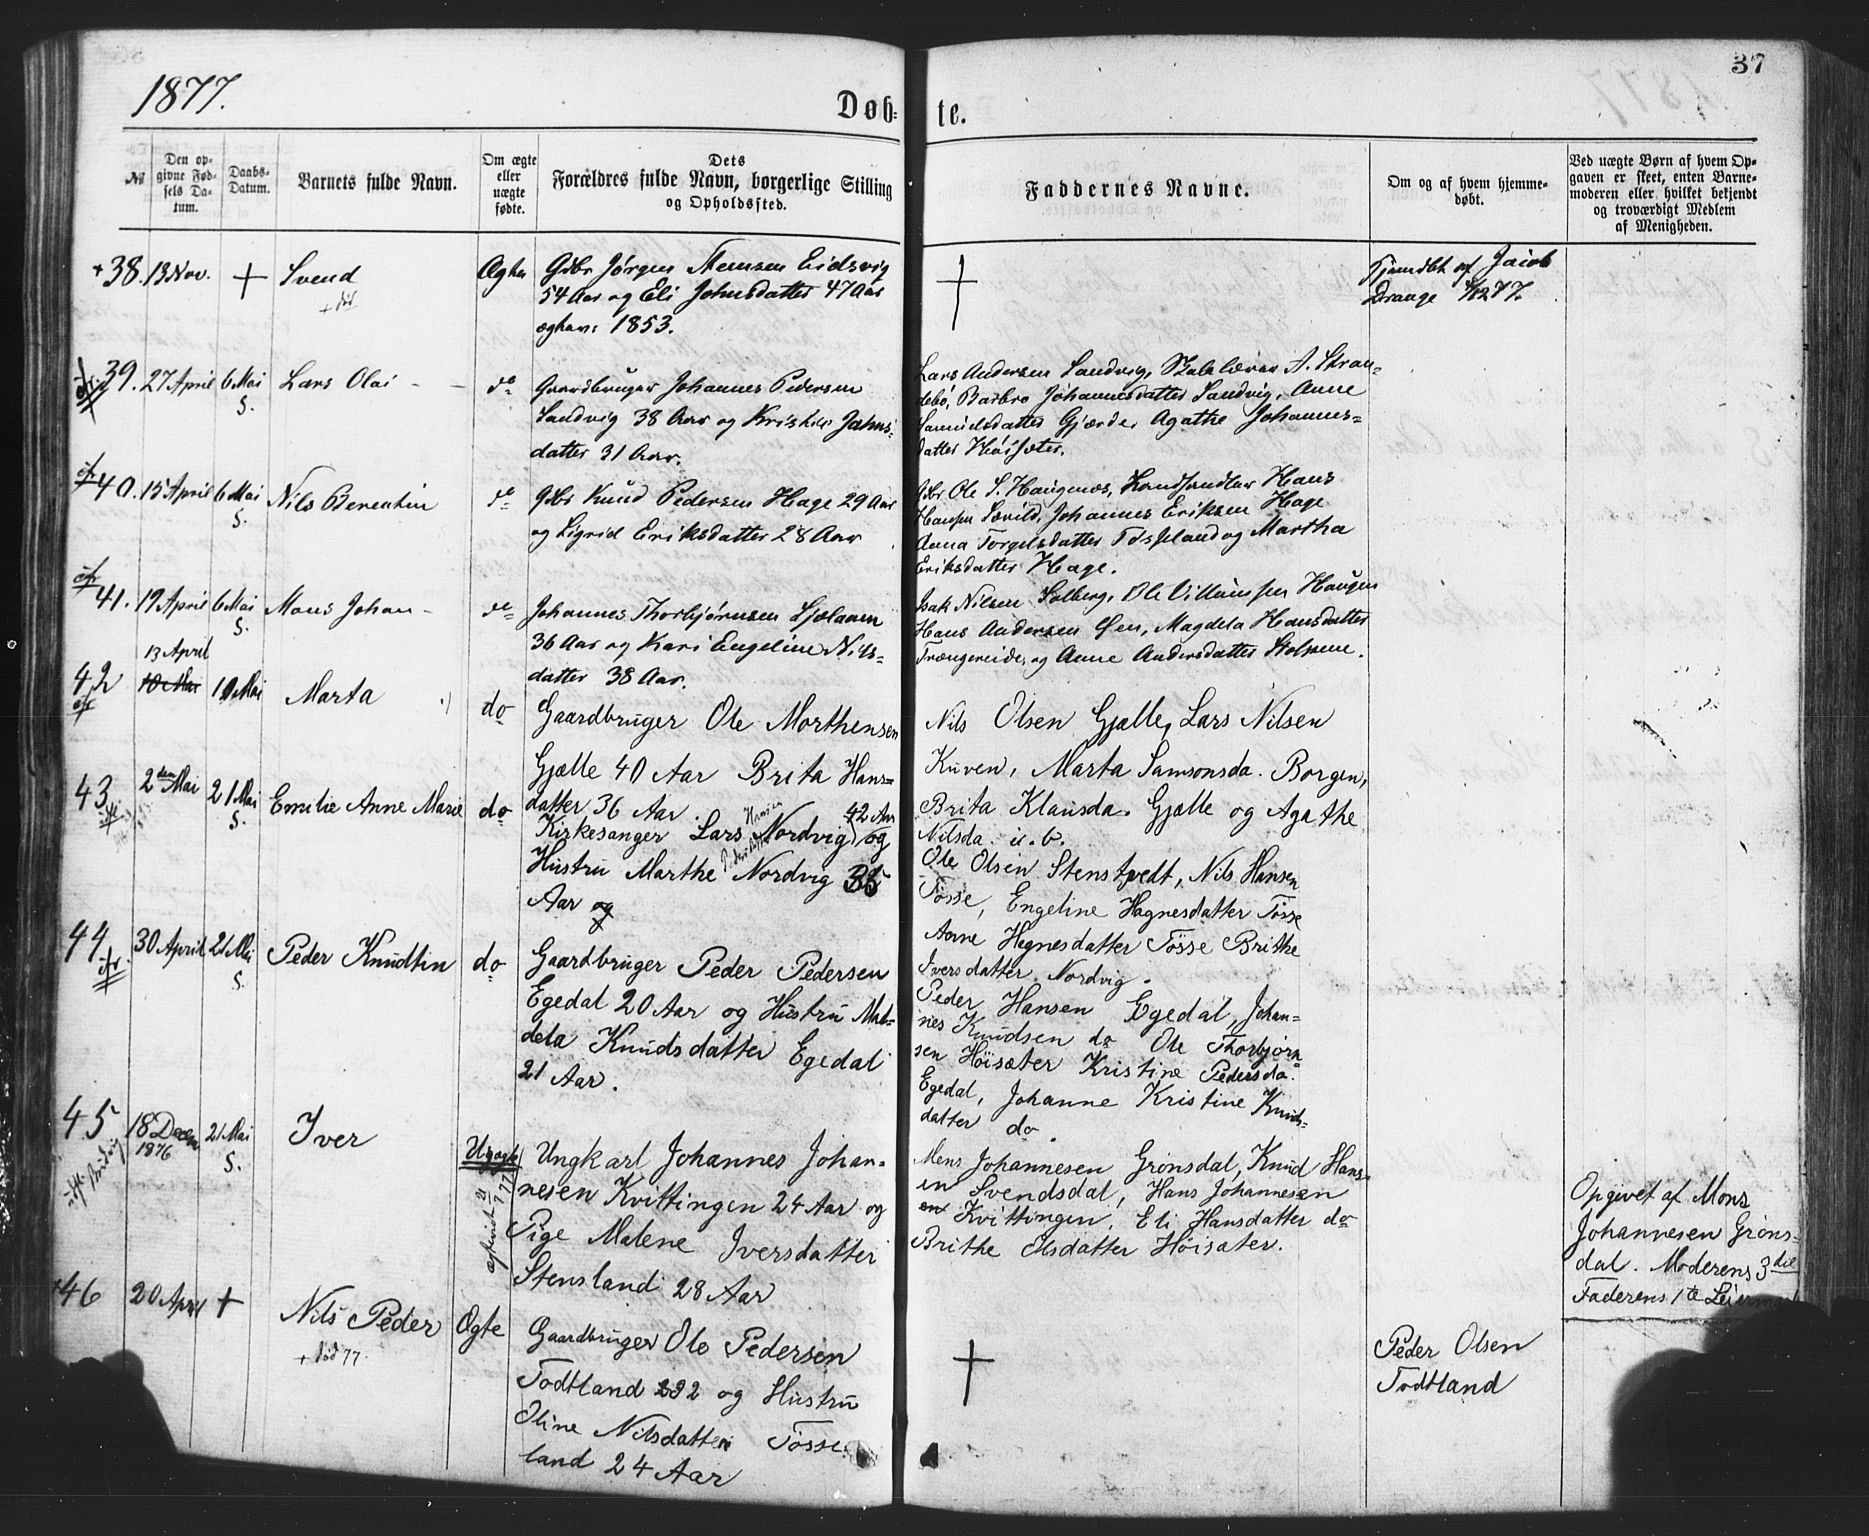 1877.
37
Døb-
te.
№
Den op-
givne Fød-
sels Da-
tum.
Daabs-
Datum.
Barnets fulde Navn.
Om ægte
eller
uægte
fødte.
Dets
Forældres fulde Navn, borgerlige Stilling
og Opholdssted.
Faddernes Navne.
Om og af hvem hjemme-
døbt.
Ved uægte Børn af hvem Op-
gaven er skeet, enten Barne-
moderen eller hvilket bekjendt
og troværdigt Medlem
af Menigheden.
+38. 13 Nov. + Svend
+ død
Ægte
Gdbr Jørgen Eidsvig
54 Aar og Eli Johnsdatter 47 Aar
1853.
†
af Jacob
Drange 77.
39. 27 April 6 Mai
S.
Lars Olai - -
do
Gaardbruger Johannes Pedersen
Sandvig 38 Aar og Johns-
datter 31 Aar.
Lars Andersen Sandvig, Skolelærer A. Stran-
debø, Barbro Johannesdatter Sandvig, Anne
Samuelsdatter Gjærde, Agathe Johannes-
datter Høisæter.
40. 15 April 6 Mai
S.
Nils Berentin
do
Gdbr Knud Pedersen Hage 29 Aar
og Sigrid Eriksdatter 28 Aar
Gdbr Ole S. Haugenes, Landhandler Hans
Hansen Johannes Eriksen Hage
Anna Torgilsdatter og Martha
Eriksdatter Hage.
41. 19 April 6 Mai
S.
Mons Johan -
do
Johannes Thorbjørnsen
36 Aar og Kari Engeline Nils-
datter 38 Aar.
Isak Nilsen Solberg, Ole Villumsen Haugen
Hans Andersen Øen, Magdela Hansdatter
Trængereide, og Anne Andersdatter Stolpene.
42
13 April
10 Mai
10 Mai
Marta
do
Gaardbruger Ole Morthensen
Gjælle 40 Aar Brita Hans-
datter 36 Aar
Nils Olsen Gjælle, Lars Nilsen
Kuven, Marta Samsonsda. Borgen,
Brita Klausda. Gjælle og Agathe
Nilsda. i. b.
43
2den Mai 21 Mai
S.
Emilie Anne Marie
do
Kirkesanger Lars Nordvig 42 Aar og
Hustru Marthe Nordvig 35
Aar og
Ole Olsen Stenstvedt, Nils Hansen
Tøsse, Engeline Hagnesdatter Tøsse
Anne Hegnesdatter Tøsse Brithe
Iversdatter Nordvig.
44
30 April 21 Mai
S.
Peder Knudtin
do
Gaardbruger Peder Pedersen
Egedal 20 Aar og Hustru Mal-
dela Knudsdatter Egedal
21 Aar.
Peder Hansen Egedal, Johan-
nes Knudsen do Ole Thorbjørn
sen Høisæter Kristine Pedersda.
Egedal, Johanne Kristine Knuds-
datter do.
45
18 Decem
1876
21 Mai
S.
Iver
Uægte
Ungkarl Johannes Johan-
nesen Kvittingen 24 Aar og
Pige Malene Iversdatter
Stensland 28 Aar
Mens Johannesen Grønsdal, Knud Hans-
en Svendsdal, Hans Johannesen
en Kvittingen, Eli Hansdatter do
Brithe Olsdatter Høisæter.
Opgivet af Mons
Johannesen Grøns-
dal. Moderens 3die
Faderens 1te Leiermaal
46 20 April + Nils Peder
+ død 77.
Ægte
Gaardbruger Ole Pedersen
Todtland og Hustru
Oline Nilsdatter Tøsse
land 24 Aar
†
Peder Olsen
Todtland